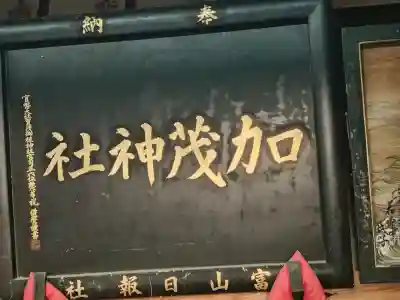 奉納
加茂神社
富山日報社